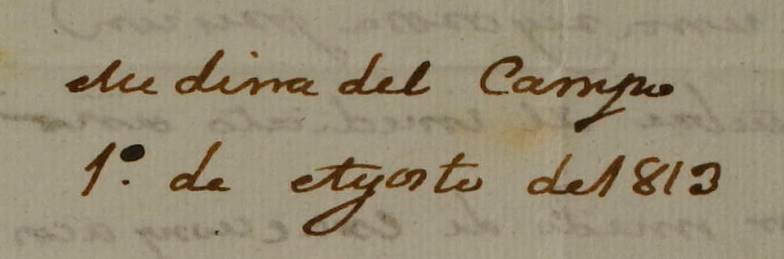 Medina del Campo
1º. de Agosto de 1813